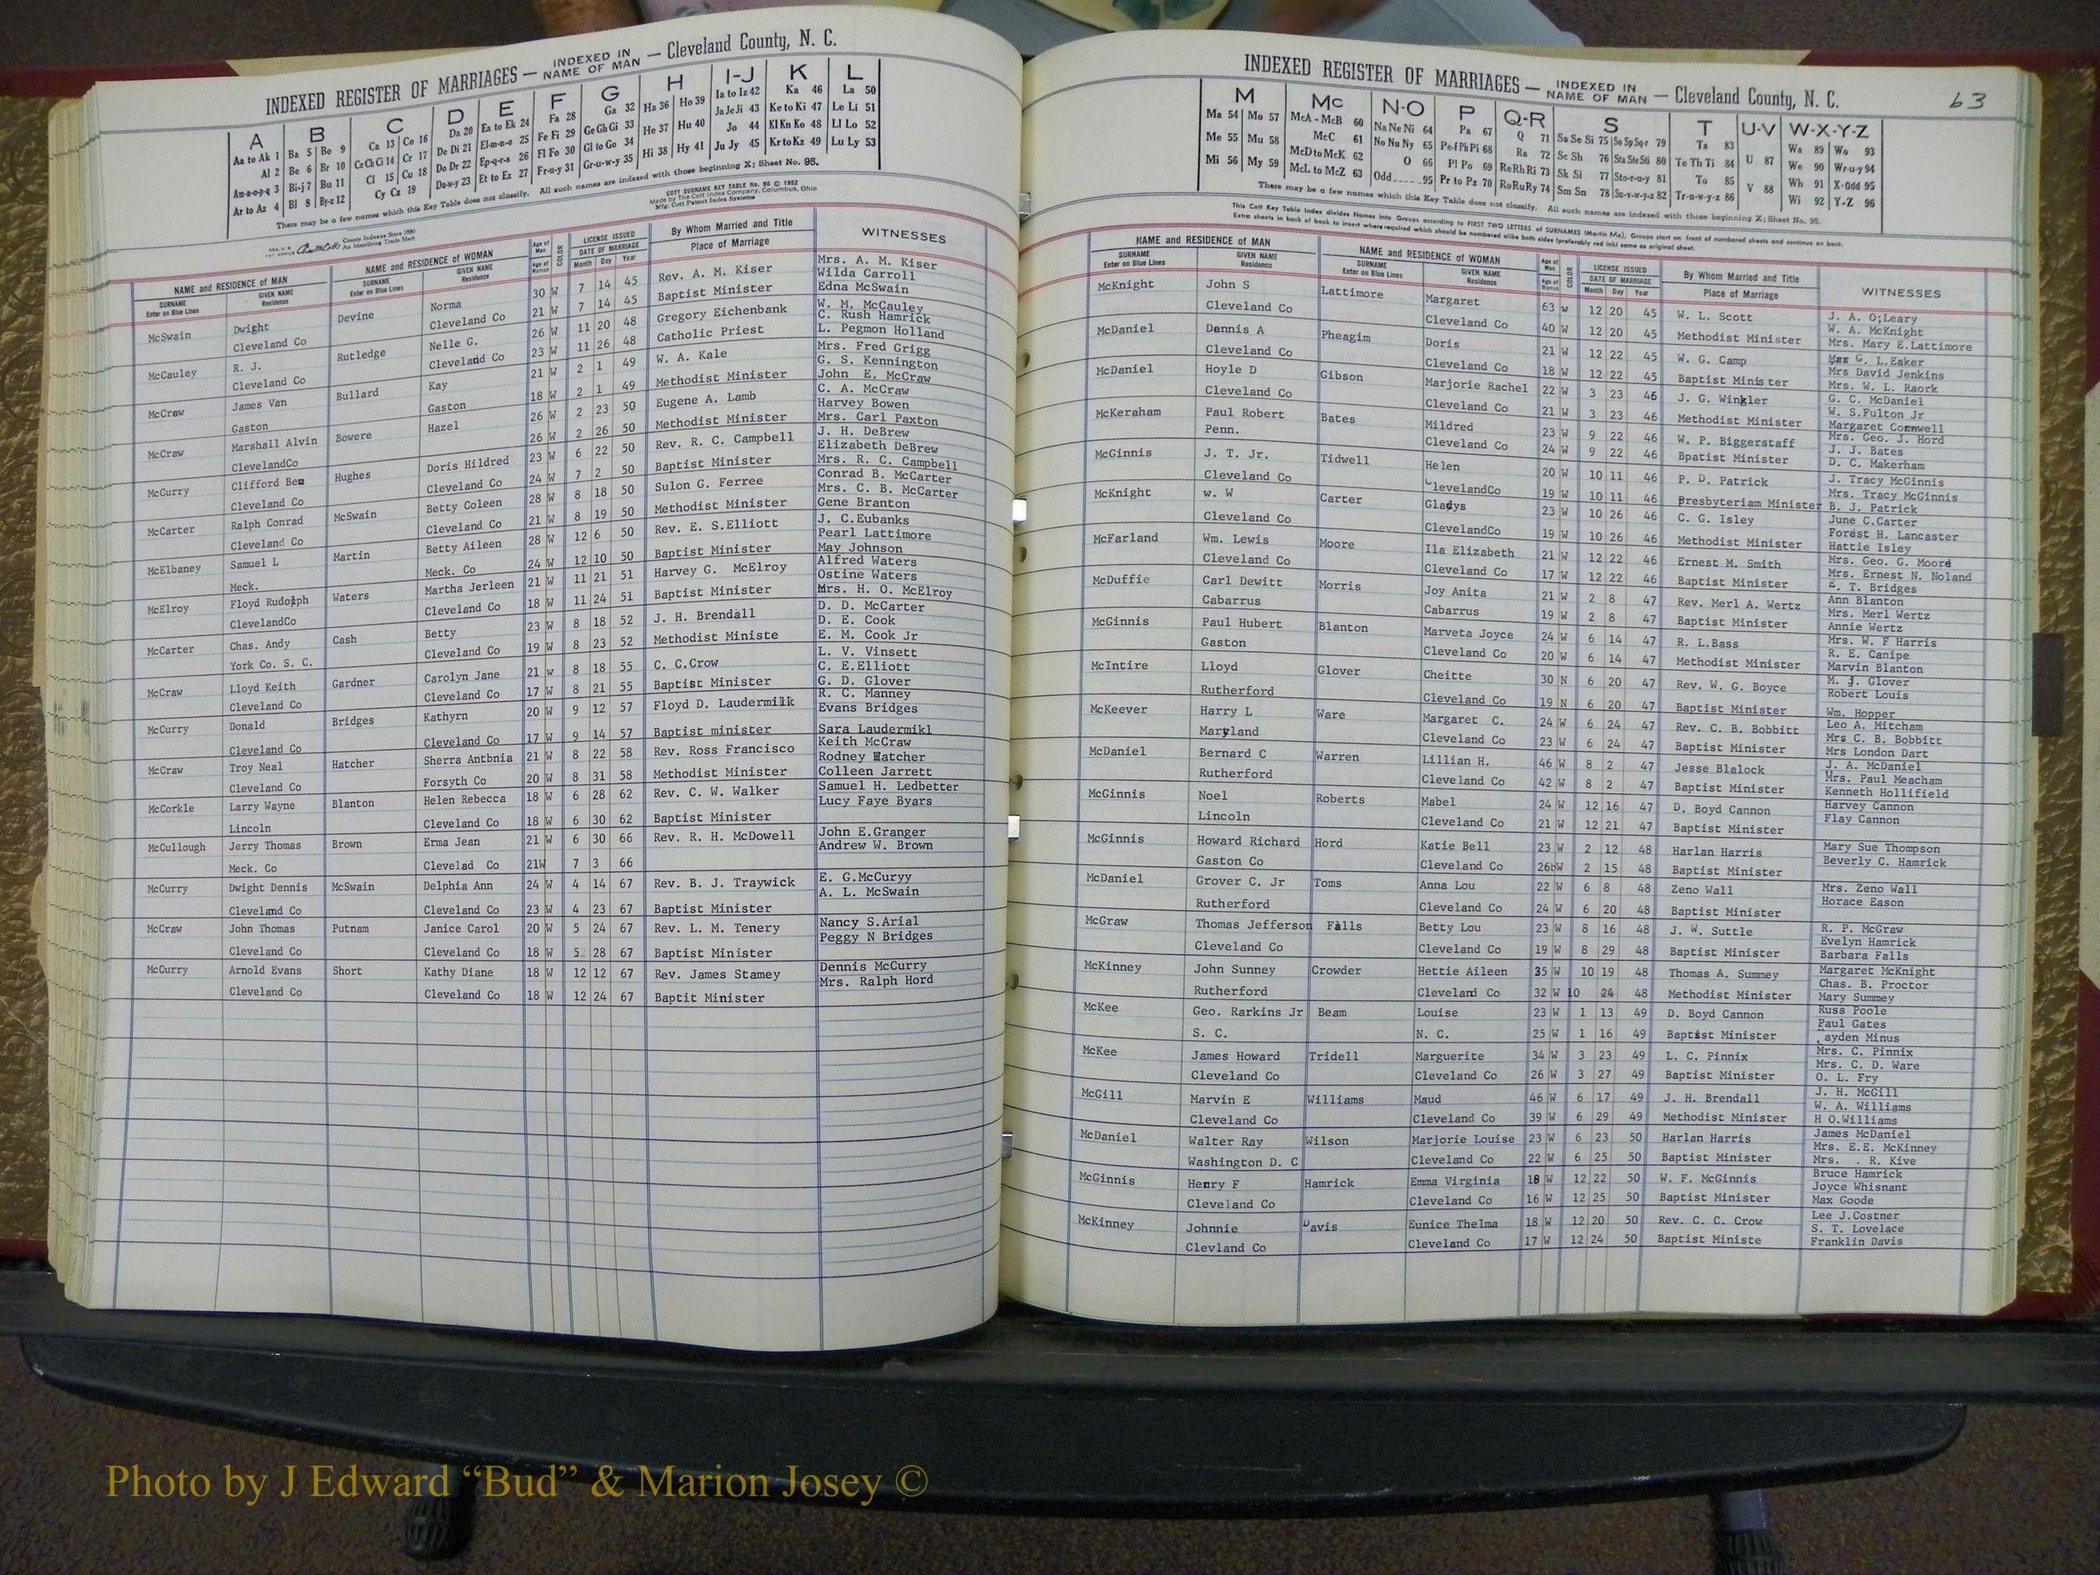 INDEXED REGISTER OF MARRIAGES — INDEXED IN NAME OF MAN — Cleveland County, N. C.
A B C D E F G H I-J K L
Aa to Ak 1 Ba 5 Bo 9 Ca 13 Co 16 Da 20 Ea to Ek 24 Fa 28 Ga 32 Ha 36 Ho 39 Ia to Iz 42 Ka 46 La 50
Al 2 Be 6 Br 10 Ce Ch Ci 14 Cr 17 De Di 21 El-m-n-o 25 Fe Fi 29 Ge Gh Gi 33 He 37 Hu 40 Ja Je Ji 43 Ke to Ki 47 Le Li 51
Am-n-o-p-q 3 Bi-j 7 Bu 11 Cl 15 Cu 18 Do Dr 22 Ep-q-r-s 26 Fl Fo 30 Gl to Go 34 Hi 38 Hy 41 Jo 44 Kl Kn Ko 48 Ll Lo 52
Ar to Az 4 Bl 8 By-z 12 Cy Cz 19 Du-w-y 23 Et to Ez 27 Fr-u-y 31 Gr-u-w-y 35 Ju Jy 45 Kr to Kz 49 Lu Ly 53
There may be a few names which this Key Table does not classify. All such names are indexed with those beginning X; Sheet No. 95.
COTT SURNAME KEY TABLE No. 98 © 1952
Made by The Cott Index Company, Columbus, Ohio
Mfg. Cott Patent Index Systems
County Indexes Since 1880
An Identifying Trade Mark
NAME and RESIDENCE OF MAN NAME and RESIDENCE OF WOMAN Age of Man Age of Woman COLOR LICENSE ISSUED DATE OF MARRIAGE By Whom Married and Title Place of Marriage WITNESSES
SURNAME Enter on Blue Lines GIVEN NAME Residence SURNAME Enter on Blue Lines GIVEN NAME Residence Month Day Year
McSwain Dwight Devine Norma 30 W 7 14 45 Rev. A. M. Kiser Mrs. A. M. Kiser
Wilda Carroll
Cleveland Co Cleveland Co 21 W 7 14 45 Baptist Minister Edna McSwain
McCauley R. J. Rutledge Nelle G. 26 W 11 20 48 Gregory Eichenbank W. M. McCauley
C. Rush Hamrick
Cleveland Co Cleveland Co 23 W 11 26 48 Catholic Priest L. Pegmon Holland
McCraw James Van Bullard Kay 21 W 2 1 49 W. A. Kale Mrs. Fred Grigg
G. S. Kennington
Gaston Gaston 18 W 2 1 49 Methodist Minister John E. McCraw
McCraw Marshall Alvin Bowere Hazel 26 W 2 23 50 Eugene A. Lamb C. A. McCraw
Harvey Bowen
ClevelandCo 26 W 2 26 50 Methodist Minister Mrs. Carl Paxton
McCurry Clifford Ben Hughes Doris Hildred 23 W 6 22 50 Rev. R. C. Campbell J. H. DeBrew
Elizabeth DeBrew
Cleveland Co Cleveland Co 24 W 7 2 50 Baptist Minister Mrs. R. C. Campbell
McCarter Ralph Conrad McSwain Betty Coleen 28 W 8 18 50 Sulon G. Ferree Conrad B. McCarter
Mrs. C. B. McCarter
Cleveland Co Cleveland Co 21 W 8 19 50 Methodist Minister Gene Branton
McElbaney Samuel L Martin Betty Aileen 28 W 12 6 50 Rev. E. S.Elliott J. C.Eubanks
Pearl Lattimore
Meck. Meck. Co 24 W 12 10 50 Baptist Minister May Johnson
McElroy Floyd Rudolph Waters Martha Jerleen 21 W 11 21 51 Harvey G. McElroy Alfred Waters
Ostine Waters
ClevelandCo Cleveland Co 18 W 11 24 51 Baptist Minister Mrs. H. O. McElroy
McCarter Chas. Andy Cash Betty 23 W 8 18 52 J. H. Brendall D. D. McCarter
D. E. Cook
York Co. S. C. Cleveland Co 19 W 8 23 52 Methodist Ministe E. M. Cook Jr
McCraw Lloyd Keith Gardner Carolyn Jane 21 W 8 18 55 C. C.Crow L. V. Vinsett
C. E.Elliott
Cleveland Co Cleveland Co 17 W 8 21 55 Baptist Minister G. D. Glover
McCurry Donald Bridges Kathyrn 20 W 9 12 57 Floyd D. Laudermilk R. C. Manney
Evans Bridges
Cleveland Co Cleveland Co 17 W 9 14 57 Baptist minister Sara Laudermikl
McCraw Troy Neal Hatcher Sherra Antbnia 21 W 8 22 58 Rev. Ross Francisco Keith McCraw
Rodney Hatcher
Cleveland Co Forsyth Co 20 W 8 31 58 Methodist Minister Colleen Jarrett
McCorkle Larry Wayne Blanton Helen Rebecca 18 W 6 28 62 Rev. C. W. Walker Samuel H. Ledbetter
Lucy Faye Byars
Lincoln Cleveland Co 18 W 6 30 62 Baptist Minister
McCullough Jerry Thomas Brown Erma Jean 21 W 6 30 66 Rev. R. H. McDowell John E.Granger
Andrew W. Brown
Meck. Co Clevelad Co 21W 7 3 66
McCurry Dwight Dennis McSwain Delphia Ann 24 W 4 14 67 Rev. B. J. Traywick E. G.McCuryy
A. L. McSwain
Cleveland Co Cleveland Co 23 W 4 23 67 Baptist Minister
McCraw John Thomas Putnam Janice Carol 20 W 5 24 67 Rev. L. M. Tenery Nancy S.Arial
Peggy N Bridges
Cleveland Co Cleveland Co 18 W 5 28 67 Baptist Minister
McCurry Arnold Evans Short Kathy Diane 18 W 12 12 67 Rev. James Stamey Dennis McCurry
Mrs. Ralph Hord
Cleveland Co Cleveland Co 18 W 12 24 67 Baptit Minister
INDEXED REGISTER OF MARRIAGES — INDEXED IN NAME OF MAN — Cleveland County, N. C. 63
M Mc N-O P Q-R S T U-V W-X-Y-Z
Ma 54 Mo 57 McA - McB 60 Na Ne Ni 64 Pa 67 Q 71 Sa Se Si 75 So Sp Sq-r 79 Ta 83 U 87 Wa 89 Wo 93
Me 55 Mu 58 McC 61 No Nu Ny 65 Pe-f Ph Pi 68 Ra 72 Sc Sh 76 Sta Ste Sti 80 Te Th Ti 84 V 88 We 90 Wr-u-y 94
Mi 56 My 59 McD to McK 62 O 66 Pl Po 69 Re Rh Ri 73 Sk Sl 77 Sto-r-u-y 81 To 85 Wh 91 X-Odd 95
McL to McZ 63 Odd 95 Pr to Pz 70 Ro Ru Ry 74 Sm Sn 78 Su-v-w-y-z 82 Tr-u-w-y-z 86 Wi 92 Y-Z 96
There may be a few names which this Key Table does not classify. All such names are indexed with those beginning X; Sheet No. 95.
This Cott Key Table Index divides Names into Groups according to FIRST TWO LETTERS of SURNAMES (Martin Ma), Groups start on front of numbered sheets and continue on back.
Extra sheets in back of book to insert where required which should be numbered alike both sides (preferably red ink) same as original sheet.
NAME and RESIDENCE OF MAN NAME and RESIDENCE OF WOMAN Age of Man Age of Woman COLOR LICENSE ISSUED DATE OF MARRIAGE By Whom Married and Title Place of Marriage WITNESSES
SURNAME Enter on Blue Lines GIVEN NAME Residence SURNAME Enter on Blue Lines GIVEN NAME Residence Month Day Year
McKnight John S Lattimore Margaret 63 W 12 20 45 W. L. Scott J. A. O;Leary
W. A. McKnight
Cleveland Co Cleveland Co 40 W 12 20 45 Methodist Minister Mrs. Mary E.Lattimore
McDaniel Dennis A Pheagim Doris 21 W 12 22 45 W. G. Camp G. L.Eaker
Mrs David Jenkins
Cleveland Co Cleveland Co 18 W 12 22 45 Baptist Minister Mrs. W. L. Raork
McDaniel Hoyle D Gibson Marjorie Rachel 22 W 3 23 46 J. G. Winkler G. C. McDaniel
W. S.Fulton Jr
Cleveland Co Cleveland Co 21 W 3 23 46 Methodist Minister Margaret Cornwell
McKeraham Paul Robert Bates Mildred 23 W 9 22 46 W. P. Biggerstaff Mrs. Geo. J. Hord
J. J. Bates
Penn. Cleveland Co 24 W 9 22 46 Bpatist Minister D. C. Makerham
McGinnis J. T. Jr. Tidwell Helen 20 W 10 11 46 P. D. Patrick J. Tracy McGinnis
Mrs. Tracy McGinnis
Cleveland Co ClevelandCo 19 W 10 11 46 Presbyteriam Minister B. J. Patrick
McKnight w. W Carter Gladys 23 W 10 26 46 C. G. Isley June C.Carter
Forest H. Lancaster
Cleveland Co ClevelandCo 19 W 10 26 46 Methodist Minister Hattie Isley
McFarland Wm. Lewis Moore Ila Elizabeth 21 W 12 22 46 Ernest M. Smith Mrs. Geo. G. Moore
Mrs. Ernest N. Noland
Cleveland Co Cleveland Co 17 W 12 22 46 Baptist Minister E. T. Bridges
McDuffie Carl Dewitt Morris Joy Anita 21 W 2 8 47 Rev. Merl A. Wertz Ann Blanton
Mrs. Merl Wertz
Cabarrus Cabarrus 19 W 2 8 47 Baptist Minister Annie Wertz
McGinnis Paul Hubert Blanton Marveta Joyce 24 W 6 14 47 R. L.Bass Mrs. W. F Harris
R. E. Canipe
Gaston Cleveland Co 20 W 6 14 47 Methodist Minister Marvin Blanton
McIntire Lloyd Glover Cheitte 30 N 6 20 47 Rev. W. G. Boyce M. J. Glover
Robert Louis
Rutherford Cleveland Co 19 N 6 20 47 Baptist Minister Wm. Hopper
McKeever Harry L Ware Margaret C. 24 W 6 24 47 Rev. C. B. Bobbitt Leo A. Mitcham
Mrs C. B. Bobbitt
Maryland Cleveland Co 23 W 6 24 47 Baptist Minister Mrs London Dart
McDaniel Bernard C Warren Lillian H. 46 W 8 2 47 Jesse Blalock J. A. McDaniel
Mrs. Paul Meacham
Rutherford Cleveland Co 42 W 8 2 47 Baptist Minister Kenneth Hollifield
McGinnis Noel Roberts Mabel 24 W 12 16 47 D. Boyd Cannon Harvey Cannon
Flay Cannon
Lincoln Cleveland Co 21 W 12 21 47 Baptist Minister
McGinnis Howard Richard Hord Katie Bell 23 W 2 12 48 Harlan Harris Mary Sue Thompson
Beverly C. Hamrick
Gaston Co Cleveland Co 26 W 2 15 48 Baptist Minister
McDaniel Grover C. Jr Toms Anna Lou 22 W 6 8 48 Zeno Wall Mrs. Zeno Wall
Horace Eason
Rutherford Cleveland Co 24 W 6 20 48 Baptist Minister
McGraw Thomas Jefferson Falls Betty Lou 23 W 8 16 48 J. W. Suttle R. P. McGraw
Evelyn Hamrick
Cleveland Co Cleveland Co 19 W 8 29 48 Baptist Minister Barbara Falls
McKinney John Sunney Crowder Hettie Aileen 35 W 10 19 48 Thomas A. Summey Margaret McKnight
Chas. B. Proctor
Rutherford Cleveland Co 32 W 10 24 48 Methodist Minister Mary Summey
McKee Geo. Rarkins Jr Beam Louise 23 W 1 13 49 D. Boyd Cannon Russ Poole
Paul Gates
S. C. N. C. 25 W 1 16 49 Baptist Minister ayden Minus
McKee James Howard Tridell Marguerite 34 W 3 23 49 L. C. Pinnix Mrs. C. Pinnix
Mrs. C. D. Ware
Cleveland Co Cleveland Co 26 W 3 27 49 Baptist Minister O. L. Fry
McGill Marvin E Williams Maud 46 W 6 17 49 J. H. Brendall J. H. McGill
W. A. Williams
Cleveland Co Cleveland Co 39 W 6 29 49 Methodist Minister H O.Williams
McDaniel Walter Ray Wilson Marjorie Louise 23 W 6 23 50 Harlan Harris James McDaniel
Mrs. E.E. McKinney
Washington D. C Cleveland Co 22 W 6 25 50 Baptist Minister Mrs. . R. Kive
McGinnis Henry F Hamrick Emma Virginia 18 W 12 22 50 W. F. McGinnis Bruce Hamrick
Joyce Whisnant
Cleveland Co Cleveland Co 16 W 12 25 50 Baptist Minister Max Goode
McKinney Johnnie Davis Eunice Thelma 18 W 12 20 50 Rev. C. C. Crow Lee J.Costner
S. T. Lovelace
Clevland Co Cleveland Co 17 W 12 24 50 Baptist Ministe Franklin Davis
Photo by J Edward “Bud” & Marion Josey ©